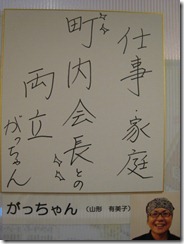 仕事・家庭
町内会長との
両立
がっちゃん
がっちゃん (山形 有美子)